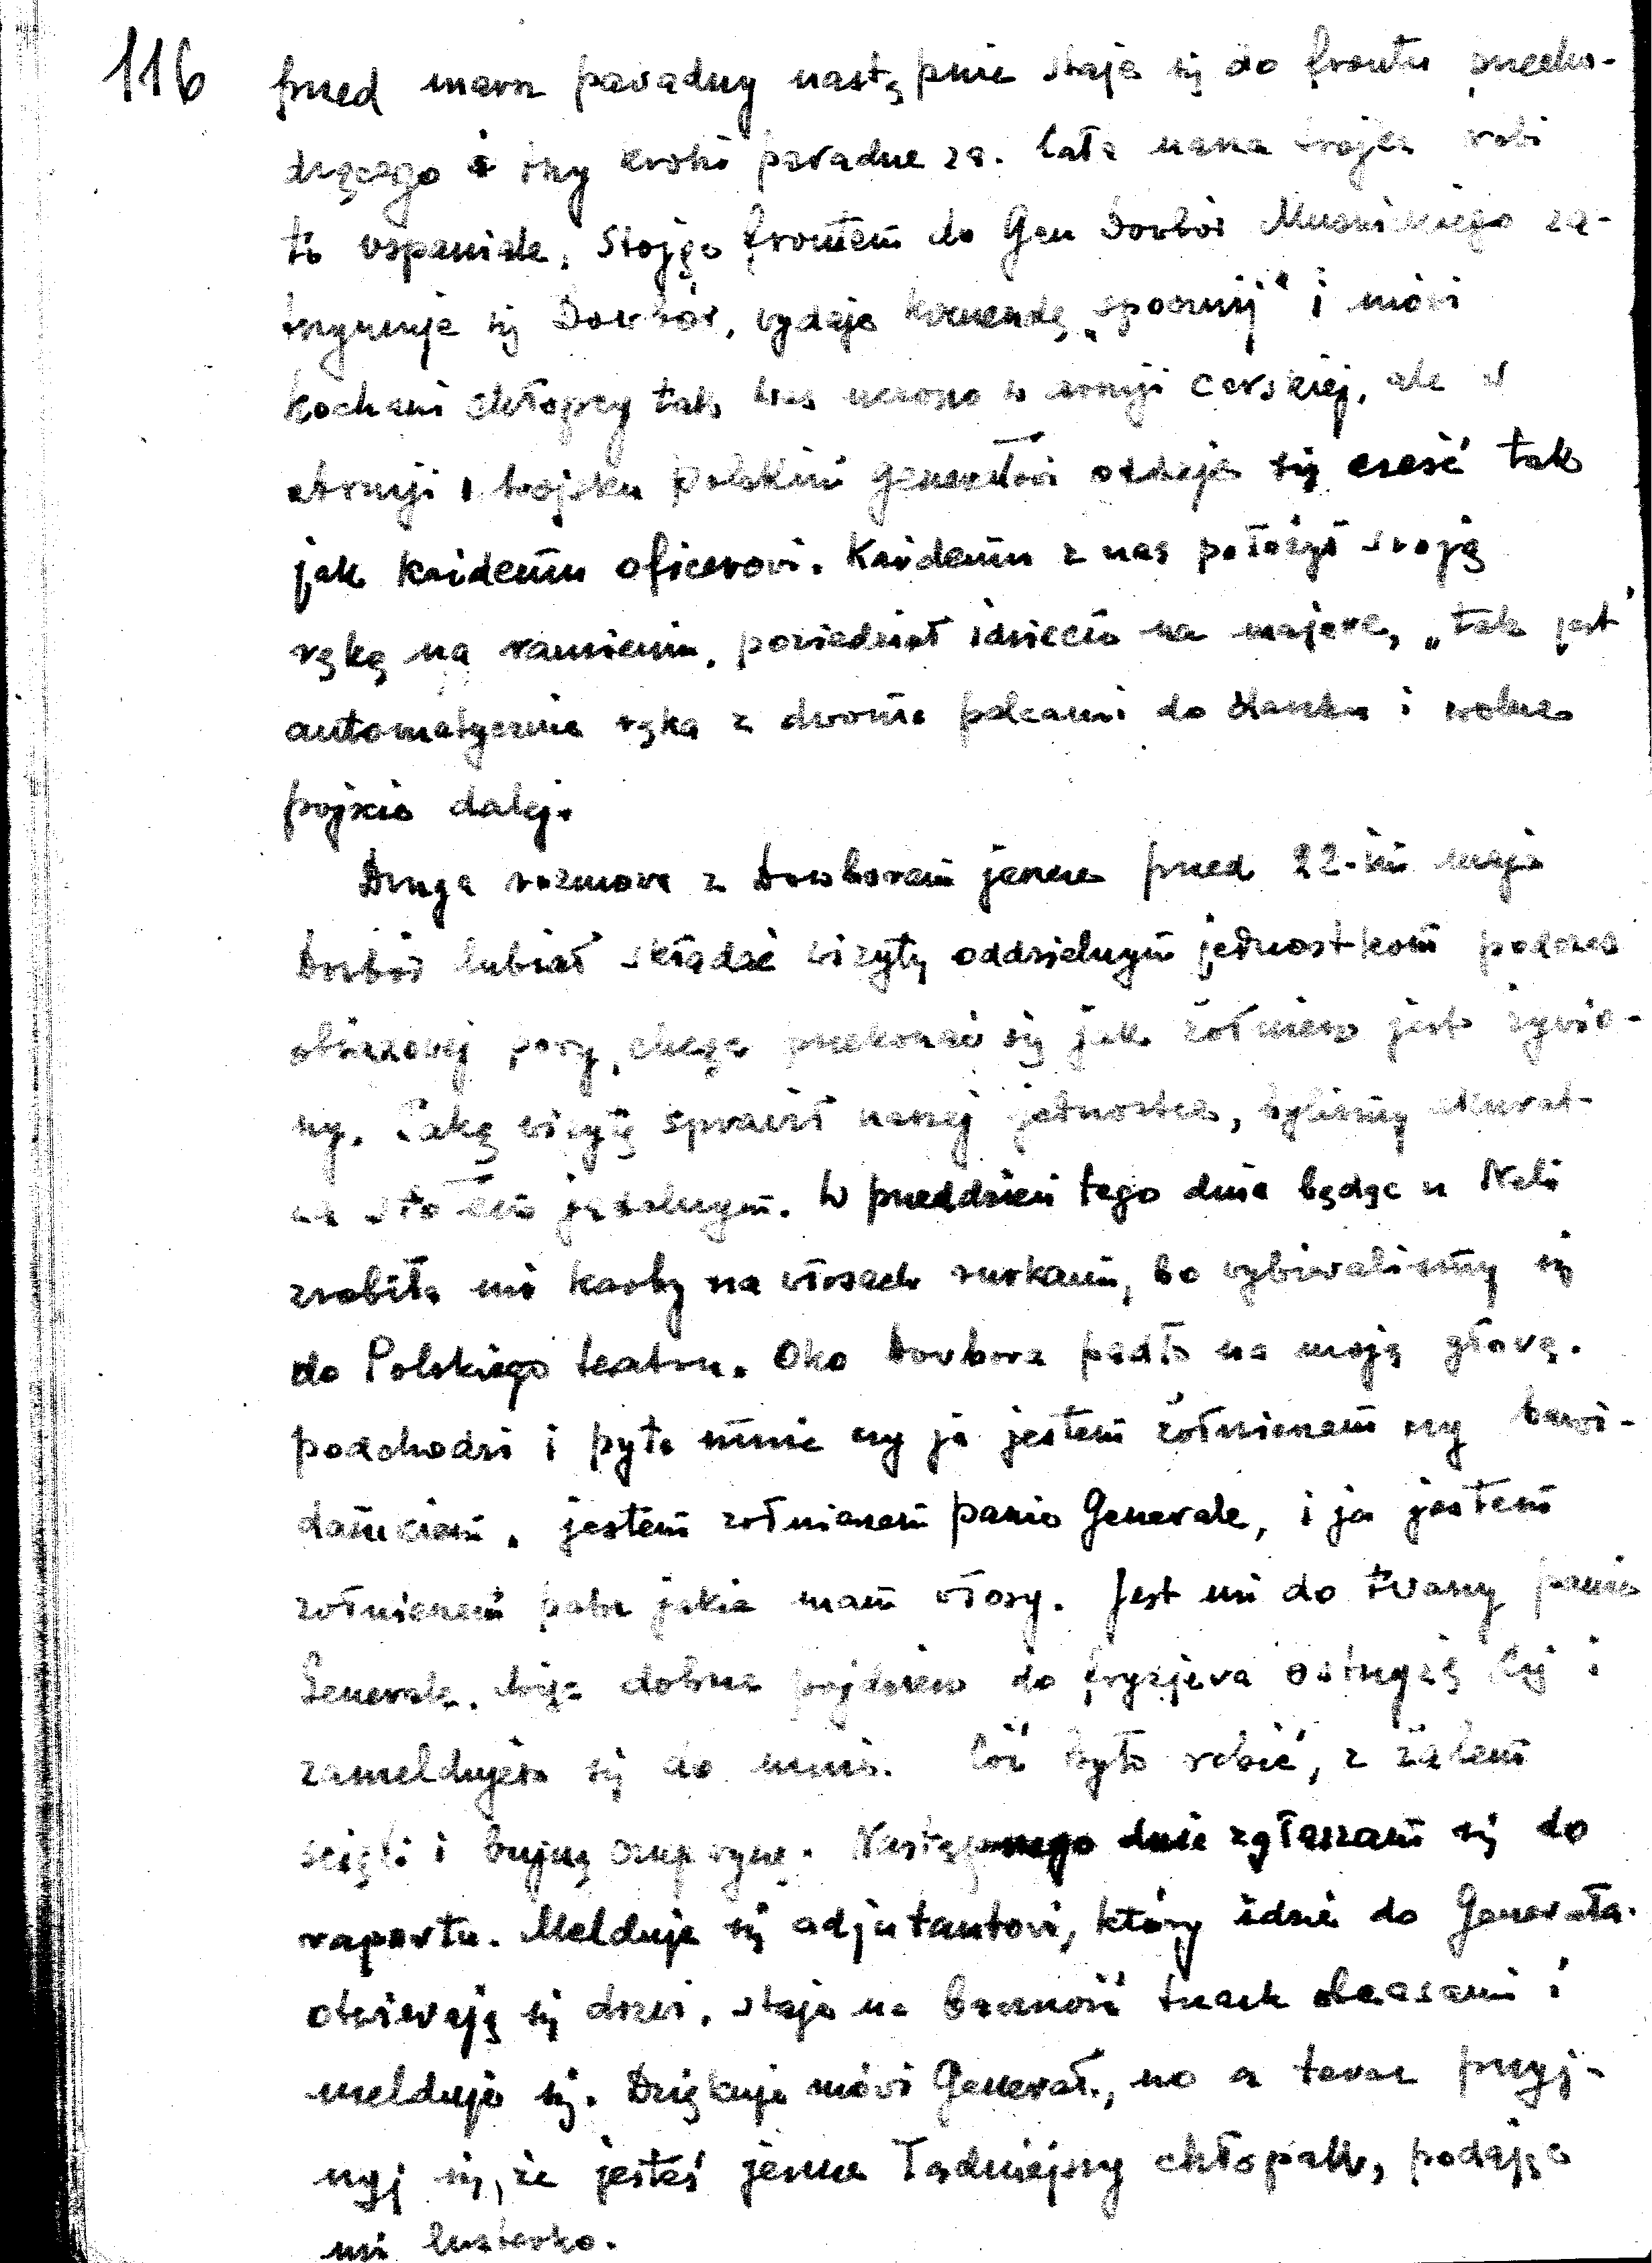 116
przed marsz paradny następnie staje się do frontu przecho-
dzącego i trzy kroki paradne za. Cała nasza trójca robi
to wspaniale. Stojąc frontem do Gen Dowbór Muśnickiego za-
trzymuje się Dowbór, wydaje komendę „spocznij" i mówi
kochani chłopcy tak was uczono w armji carskiej, ale w
armji i wojsku polskim generałowi oddaje się cześć tak
jak każdemu oficerowi. Każdemu z nas położył swoją
rękę na ramieniu, powiedział idziecie na majora, „tak jest"
automatycznie ręka z dwoma palcami do daszka i wolne
pójście dalej.
Druga rozmowa z Dowborem jeszcze przed 22-im maja
Dowbór lubiał składać wizyty oddzielnym jednostkom podczas
obiadowej pory, chcąc przekonać się jak żołnierz jest żywio-
ny. Taką wizytę sprawił naszej jednostce, byliśmy akurat
na stołem jadalnym. W przeddzień tego dnia będąc u Neli
zrobiła mi karby na włosach rurkami, bo wybieraliśmy się
do Polskiego teatru. Oko Dowbora padło na moją głowę.
podchodzi i pyta mnie czy ja jestem żołnierzem czy bawi-
damkiem. jestem żołnierzem panie Generale, i ja jestem
żołnierzem patrz jakie mam włosy. Jest mi do twarzy panie
Generale. więc dobrze pójdziesz do fryzjera ostrzyżą cię i
zameldujesz się do mnie. Cóż było robić, z żalem
ścięli i bujną czuprynę. Następnego dnia zgłaszam się do
raportu. Melduję się adjutantowi, który idzie do Generała.
otwierają się drzwi. staję na baczność trzask obcasami i
melduję się. Dziękuję mówi Generał, no a teraz przyj-
rzyj się, że jesteś jeszcze ładniejszy chłopak, podając
mi lusterko.